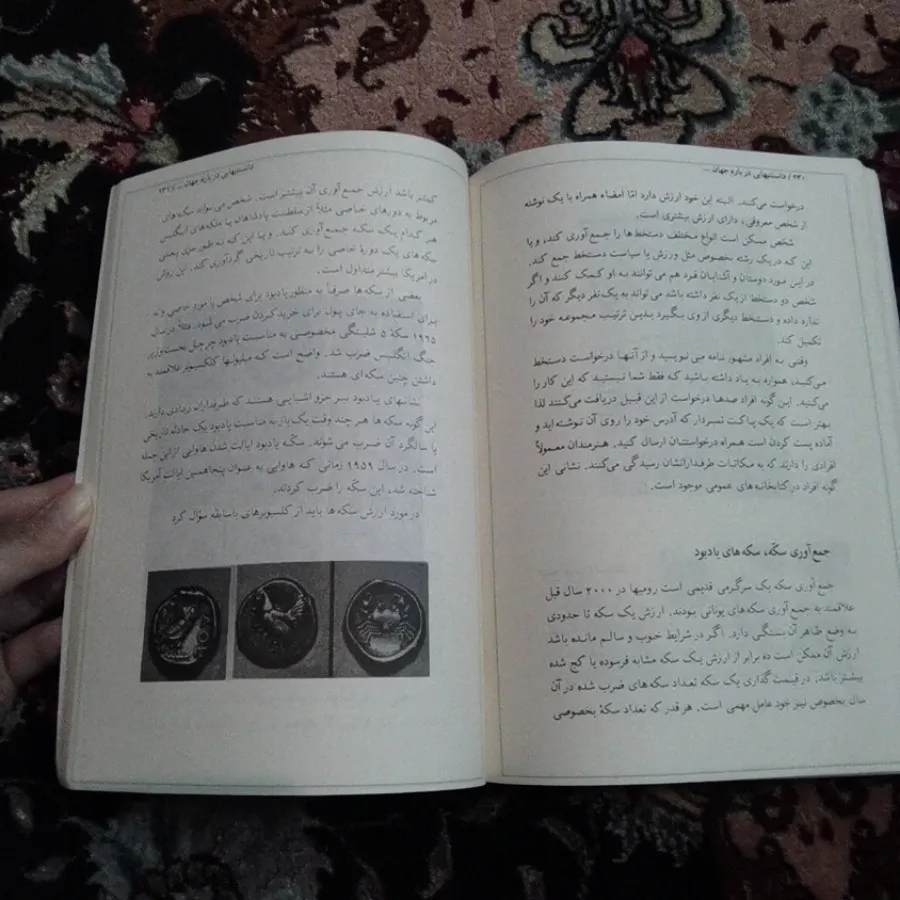 ۲۳۰ / دانستنیهایی درباره جهان ...
درخواست می‌کنند. البته این خود ارزش دارد امّا امضاء همراه با یک نوشته
از شخص معروفی، دارای ارزش بیشتری است.
شخص ممکن است انواع مختلف دستخط‌ها را جمع‌آوری کند، و یا
این که در یک رشته بخصوص مثل ورزش یا سیاست دستخط جمع کند.
در این مورد دوستان و آشنایان فرد هم می توانند به او کمک کنند و اگر
شخص دو دستخط از یک نفر داشته باشد می تواند به یک نفر دیگر که آن را
ندارد داده و دستخط دیگری از وی بگیرد بدین ترتیب مجموعه خود را
تکمیل کند.
وقتی به افراد مشهور نامه می نویسید و از آنها درخواست دستخط
می‌کنید، همواره به یاد داشته باشید که فقط شما نیستید که این کار را
می‌کنید. این گونه افراد صدها درخواست از این قبیل دریافت می‌کنند لذا
بهتر است که یک پاکت تمبردار که آدرس خود را روی آن نوشته اید و
آماده پست کردن است همراه درخواستتان ارسال کنید. هنرمندان معمولاً
افرادی را دارند که به مکاتبات طرفدارانشان رسیدگی می‌کنند. نشانی این
گونه افراد در کتابخانه های عمومی موجود است.
جمع آوری سکّه، سکه های یادبود
جمع آوری سکه یک سرگرمی قدیمی است رومیها در ۲۰۰۰ سال قبل
علاقمند به جمع آوری سکه‌های یونانی بودند. ارزش یک سکه تا حدودی
به وضع ظاهر آن بستگی دارد. اگر در شرایط خوب و سالم مانده باشد
ارزش آن ممکن است ده برابر از ارزش یک سکه مشابه فرسوده یا کج شده
بیشتر باشد. در قیمت گذاری یک سکه تعداد سکه های ضرب شده در آن
سال بخصوص نیز خود عامل مهمی است. هر قدر که تعداد سکهٔ بخصوصی
دانستنیهایی درباره جهان ... /
کمتر باشد ارزش جمع آوری آن بیشتر است. شخص می تواند سکه های
مربوط به دوره‌های خاصی مثلاً از سلطنت پادشاهان یا ملکه‌های انگلیس
هر کدام یک سکه جمع‌آوری کند. و یا این که به طور مثال بعضی
سکه های یک دورهٔ خاصی را به ترتیب تاریخی گردآوری کند. این روش
در امریکا بیشتر متداول است.
بعضی از سکه‌ها صرفاً به منظور یادبود برای شخص یا مورد خاصی و نه
برای استفاده به جای پول برای خرید کردن ضرب می شود. مثلاً در سال
۱۹۶۵ سکهٔ ۵ شلینگی مخصوصی به مناسبت یادبود چرچیل نخست‌وزیر
جنگ انگلیس ضرب شد. واضح است که میلیونها کلکسیونر علاقمند به
داشتن چنین سکه ای هستند.
نشانهای یادبود نیز جزو اشیایی هستند که طرفداران زیادی دارند.
این گونه سکه ها هر چند وقت یک بار به مناسبت یادبود یک حادثه تاریخی
یا سالگرد آن ضرب می شوند. سکه یادبود ایالت شدن هاوایی از این جمله
است. در سال ۱۹۵۹ زمانی که هاوایی به عنوان پنجاهمین ایالت آمریکا
شناخته شد، این سکّه را ضرب کردند.
در مورد ارزش سکه ها باید از کلکسیونرهای باسابقه سؤال کرد